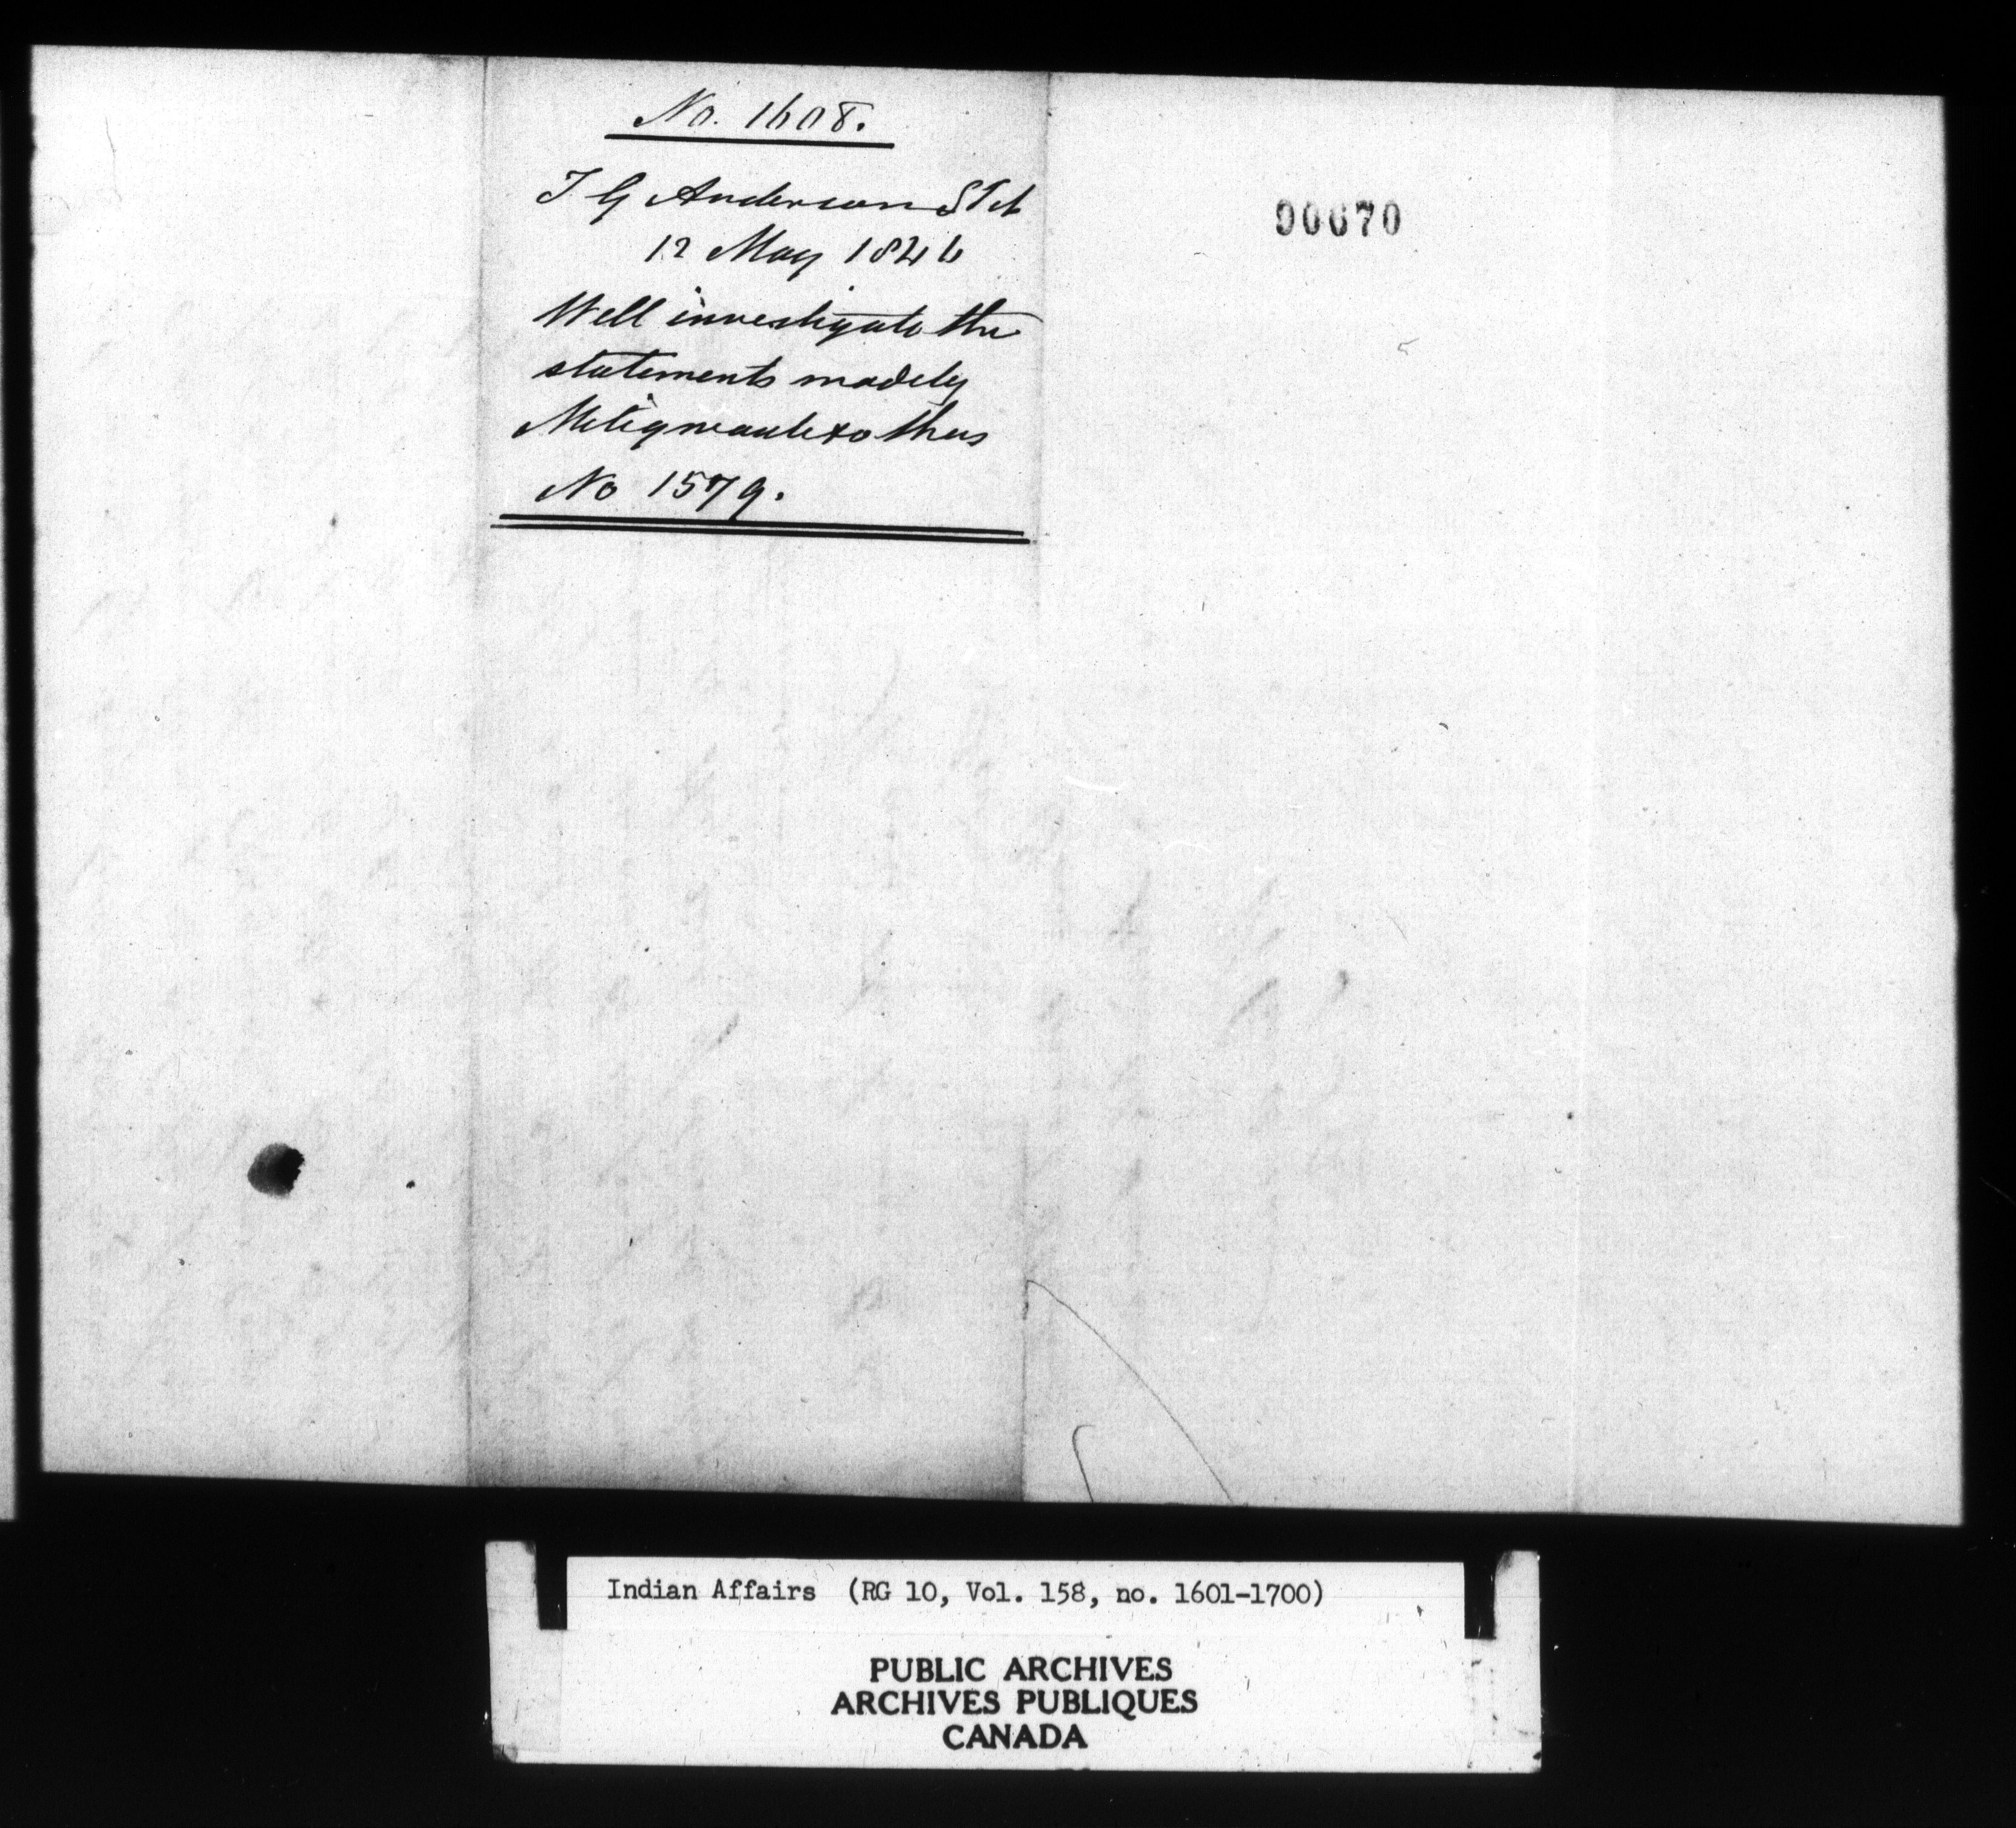 No. 1608.
T G Anderson
12 May 1846
Will investigate the
statements made by
& others
No 1579.
90670
Indian Affairs (RG 10, Vol. 158, no. 1601-1700)
PUBLIC ARCHIVES
ARCHIVES PUBLIQUES
CANADA